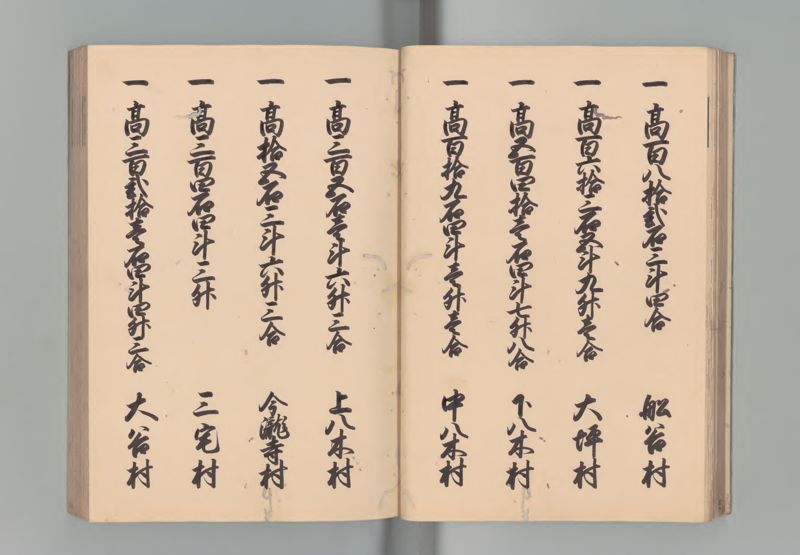 一 高百八拾弐石三斗四合 舩谷村
一 高百六拾三石五斗九升壱合 大坪村
一 高五百四拾壱石四斗七升八合 下八木村
一 高百拾九石四斗壱升壱合 中八木村
一 高三百五石壱斗六升三合 上八木村
一 高拾五石三斗六升三合 今瀧寺村
一 高三百四石四斗三升 三宅村
一 高三百弐拾壱石四斗四升三合 大谷村